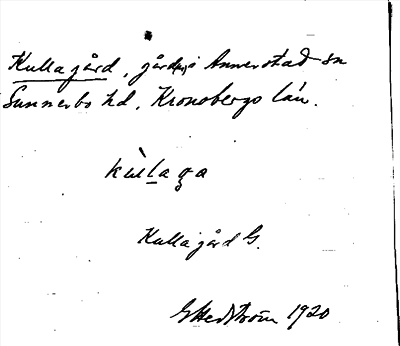 Kullagård, gård i Annerstad sn
Sunnerbo hd, Kronobergs län.
kùlaga
Kullagård G.
G Hedström 1920